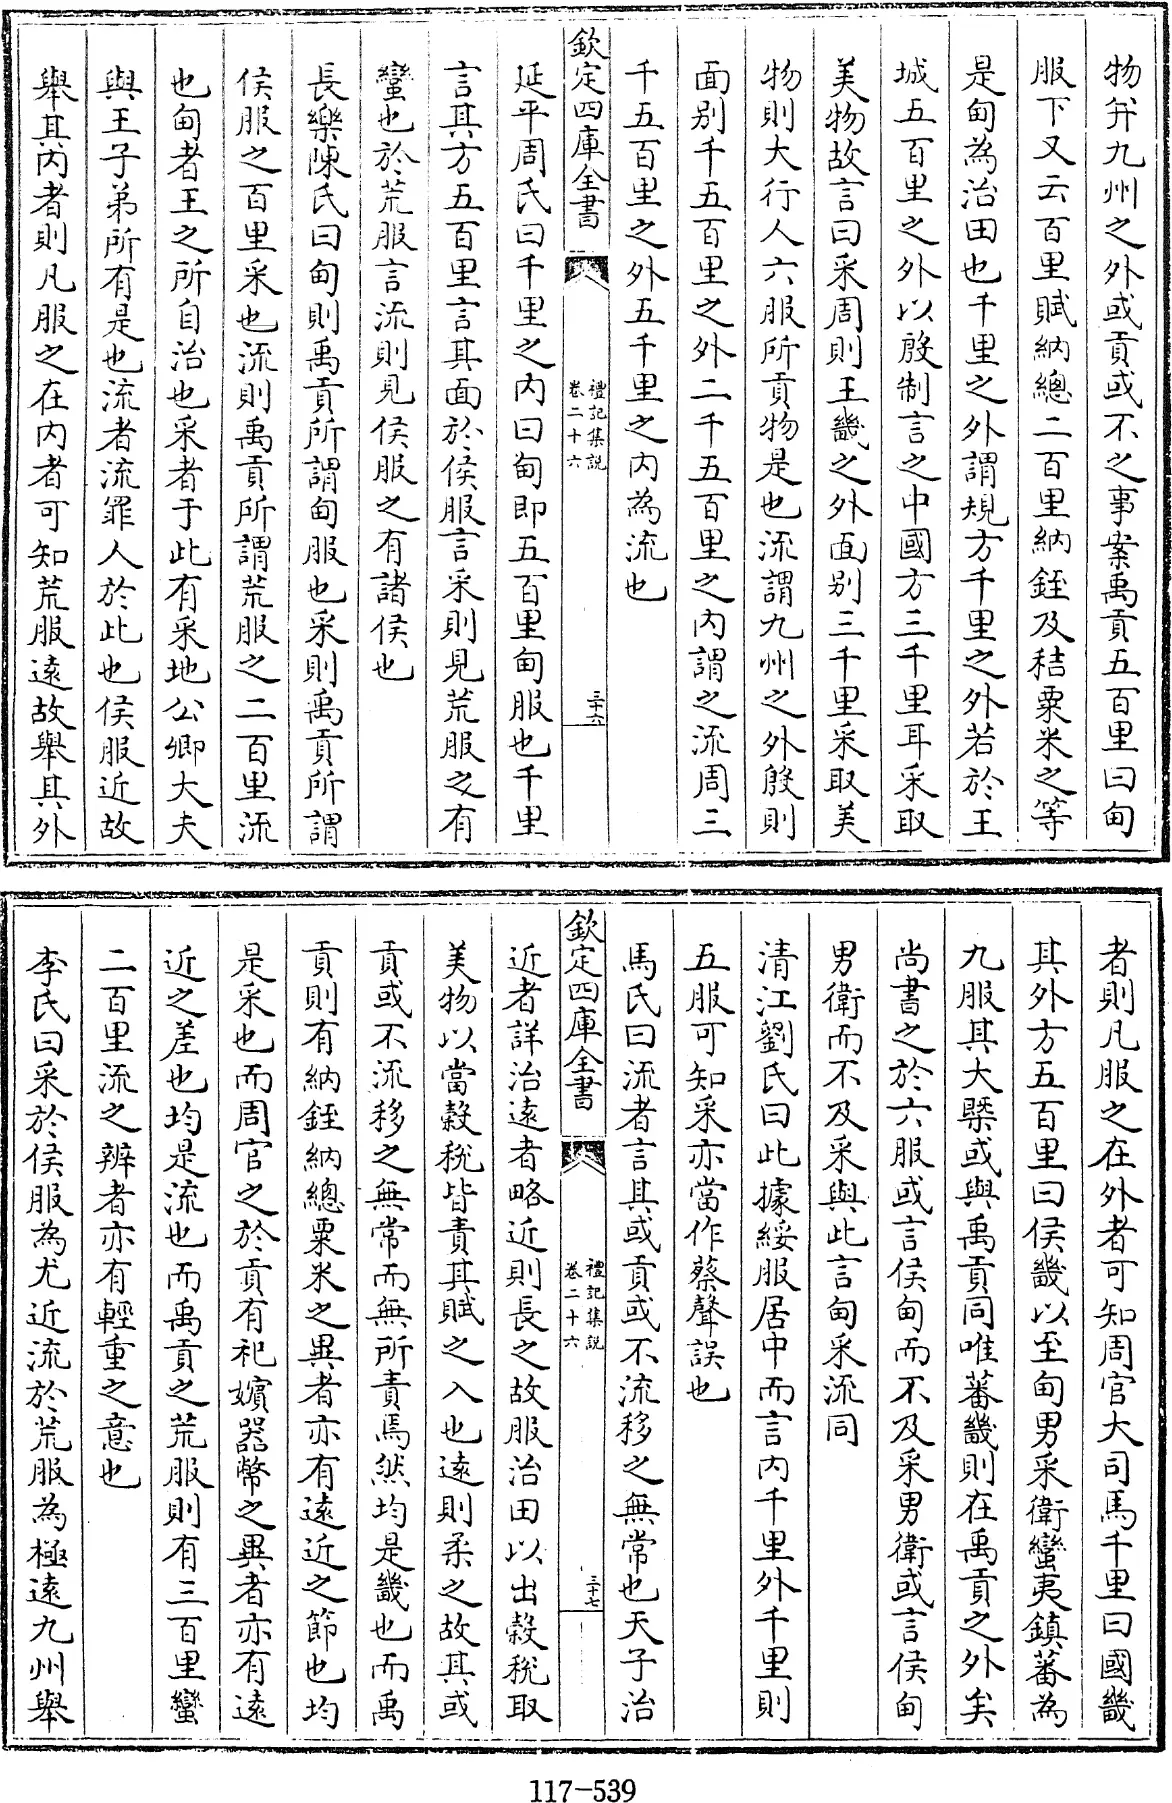 物并九州之外或貢或不之事案禹貢五百里曰甸
服下又云百里賦納總二百里納銍及秸粟米之等
是甸為治田也千里之外謂規方千里之外若於王
城五百里之外以殷制言之中國方三千里耳采取
美物故言曰采周則王畿之外面别三千里采取美
物則大行人六服所貢物是也流謂九州之外殷則
面别千五百里之外二千五百里之内謂之流周三
千五百里之外五千里之内為流也
欽定四庫全書
禮記集説
卷二十六
三十六
延平周氏曰千里之内曰甸即五百里甸服也千里
言其方五百里言其面於侯服言采則見荒服之有
蠻也於荒服言流則見侯服之有諸侯也
長樂陳氏曰甸則禹貢所謂甸服也采則禹貢所謂
侯服之百里采也流則禹貢所謂荒服之二百里流
也甸者王之所自治也采者于此有采地公卿大夫
與王子弟所有是也流者流罪人於此也侯服近故
舉其内者則凡服之在内者可知荒服逺故舉其外
者則凡服之在外者可知周官大司馬千里曰國畿
其外方五百里曰侯畿以至甸男采衛蠻夷鎮蕃為
九服其大槩或與禹貢同唯蕃畿則在禹貢之外矣
尚書之於六服或言侯甸而不及采男衛或言侯甸
男衛而不及采與此言甸采流同
清江劉氏曰此據綏服居中而言内千里外千里則
五服可知采亦當作蔡聲誤也
馬氏曰流者言其或貢或不流移之無常也天子治
欽定四庫全書
禮記集説
卷二十六
三十七
近者詳治逺者略近則長之故服治田以出穀稅取
美物以當穀稅皆責其賦之入也逺則柔之故其或
貢或不流移之無常而無所責焉然均是畿也而禹
貢則有納銍納總粟米之異者亦有逺近之節也均
是采也而周官之於貢有祀嬪器幣之異者亦有逺
近之差也均是流也而禹貢之荒服則有三百里蠻
二百里流之辨者亦有輕重之意也
李氏曰采於侯服為尤近流於荒服為極逺九州舉
117-539